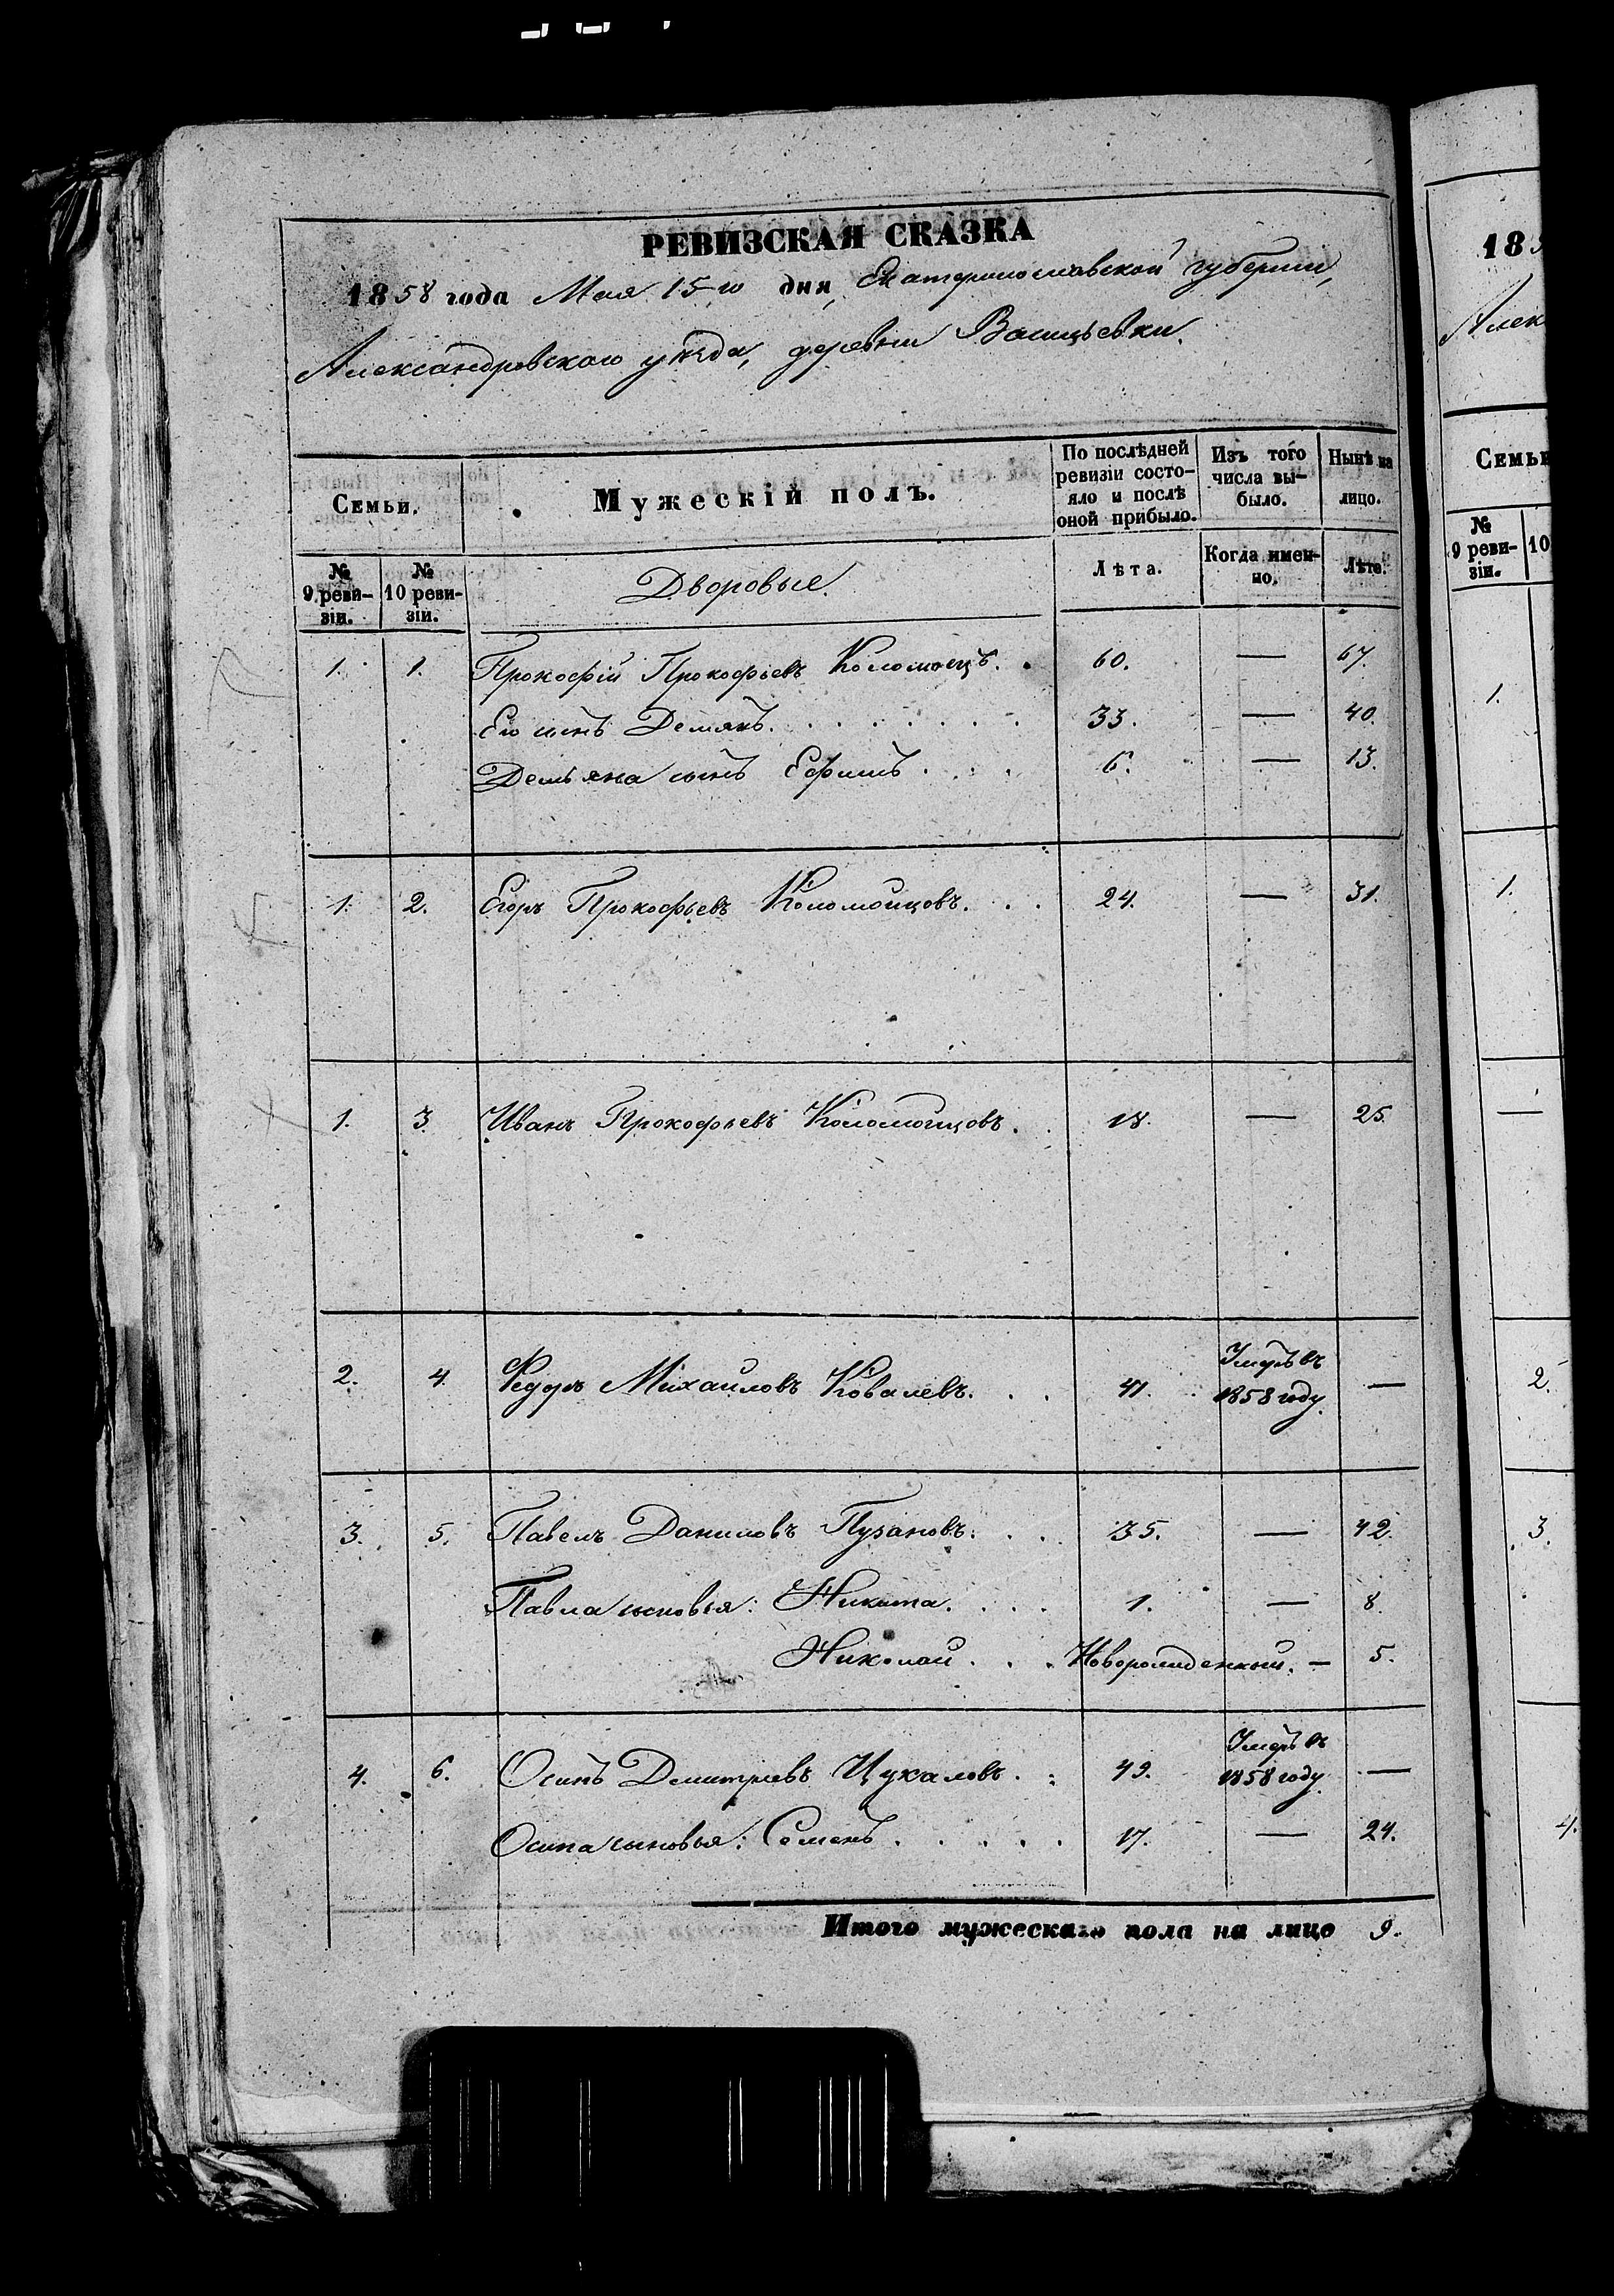 РЕВИЗСКАЯ СКАЗКА
1858 года Мая 15го дня, Екатеринославской губернии,
Александровского уѣзда, деревни
Семьи. Мужескій полъ. По послѣдней ревизіи состо-яло и послѣ оной прибыло. Изъ того числа вы-было. Нынѣ на лицо.
№ 9 реви-зіи. № 10 реви-зіи. Дворовые. Лѣта. Когда имен-но. Лѣта.
1. 1. Прокофій Прокофьевъ Коломоецъ. 60. — 67.
Его сынъ Демянъ. 33. — 40.
Демьяна сынъ Ефимъ. 6. — 13.
1. 2. Егоръ Прокофьевъ Коломойцовъ. 24. — 31.
1. 3. Иванъ Прокофьевъ Коломойцовъ. 18. — 25.
2. 4. Федоръ Михайловъ Ковалевъ. 41. Умеръ въ 1858 году. —
3. 5. Павелъ Даниловъ Пузановъ. 35. — 42.
Павла сыновья: Никита. 1. — 8.
Николай. Новорожденный. — 5.
4. 6. Осипъ Дмитріевъ Цукаловъ. 49. Умеръ въ 1858 году. —
Осипа сыновья: Семенъ. 17. — 24.
Итого мужескаго пола на лицо 9.
185
Алек
Семьи
№ 9 реви-зіи. 10
1.
1.
—
2.
3.
4.